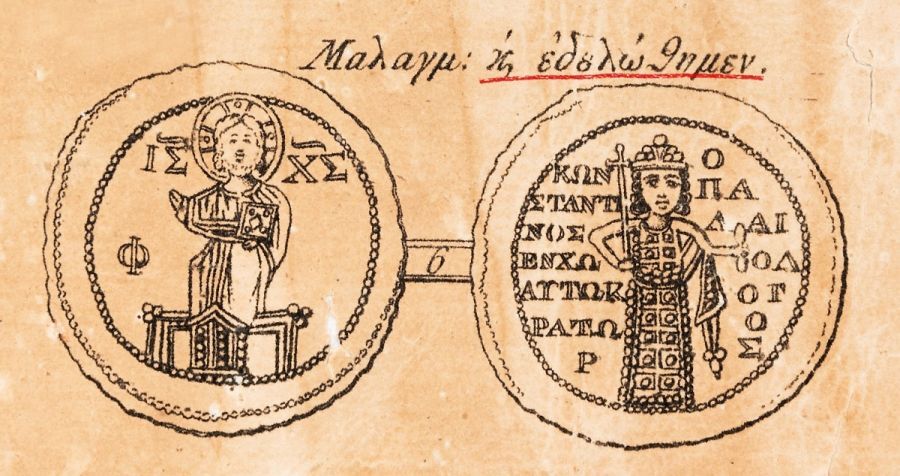 Μαλαγμ: κ̀ ἐδελώθημεν.
ΙΣ ΧΣ
Φ
6
ΚΩΝ
ΣΤΑΝΤΙ
ΝΟΣ
ΕΝΧΩ
ΑΥΤΩΚ
ΡΑΤΩ
Ρ
Ο
ΠΑ
ΛΑΙ
ΟΛ
ΟΓ
ΟΣ